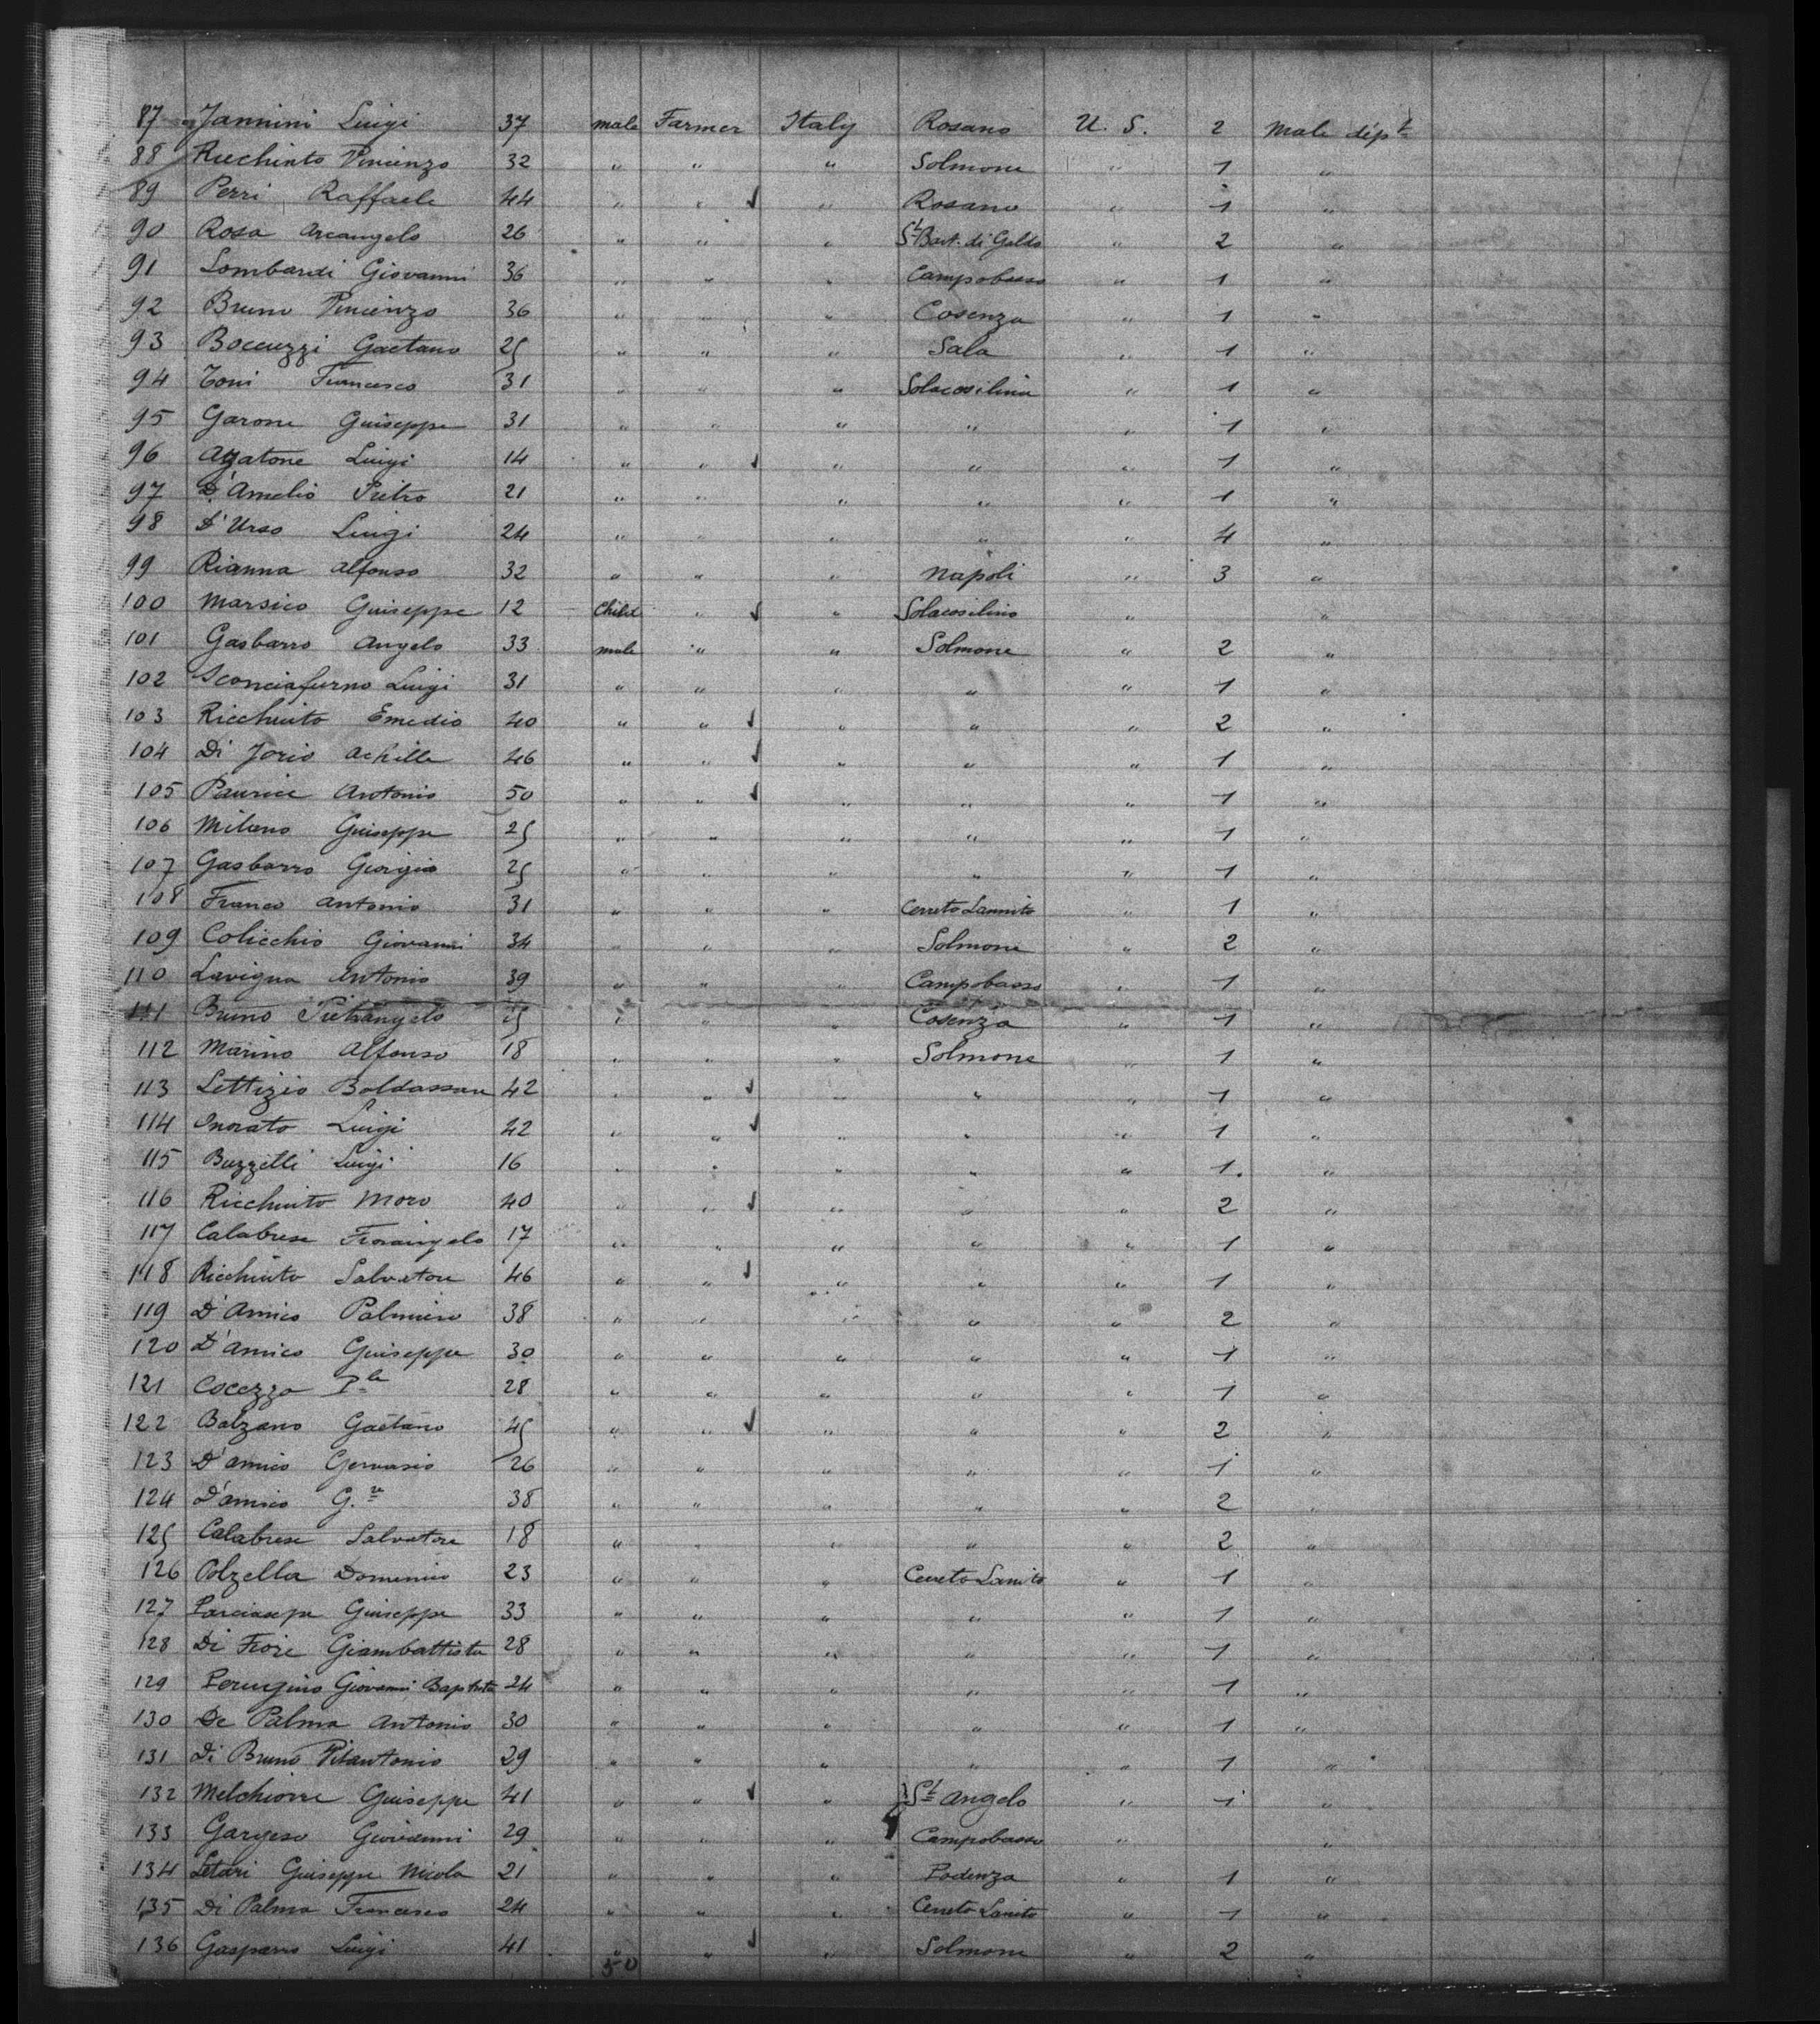 87 Jannini Luigi 37 male Farmer Italy Rosano U. S. 2 male dépt
88 Ricchiuto Vincenzo 32 " " " Solmone " 1 "
89 Perri Raffaele 44 " " " Rosano " 1 "
90 Rosa Arcangelo 26 " " " St Bart. di Galdo " 2 "
91 Lombardi Giovanni 36 " " " Campobasso " 1 "
92 Bruno Vincenzo 36 " " " Cosenza " 1 "
93 Boccuzzi Gaetano 25 " " " Sala " 1 "
94 Toni Francesco 31 " " " Solacosilina " 1 "
95 Garone Guiseppe 31 " " " " " 1 "
96 Agatone Luigi 14 " " " " " 1 "
97 D'Amelio Pietro 21 " " " " " 1 "
98 D'Urso Luigi 24 " " " " " 4 "
99 Rianna Alfonso 32 " " " Napoli " 3 "
100 Marsico Guiseppe 12 Child " " Solacosilino " "
101 Gasbarro Angelo 33 male " " Solmone " 2 "
102 Sconciafurno Luigi 31 " " " " " 1 "
103 Ricchiuto Emedio 40 " " " " " 2 "
104 Di Jorio Achille 46 " " " " " 1 "
105 Antonio 50 " " " " " 1 "
106 Milano Guiseppe 25 " " " " " 1 "
107 Gasbarro Giorgio 25 " " " " " 1 "
108 Franco Antonio 31 " " " Cerreto Sannito " 1 "
109 Colicchio Giovanni 34 " " " Solmone " 2 "
110 Lavigna Antonio 39 " " " Campobasso " 1 "
111 Bruno Pietrangelo 25 " " " Cosenza " 1 "
112 Marino Alfonso 18 " " " Solmone " 1 "
113 Lettizio Baldassare 42 " " " " " 1 "
114 Onorato Luigi 42 " " " " " 1 "
115 Buzzelli Luigi 16 " " " " " 1 "
116 Ricchiuto Moro 40 " " " " " 2 "
117 Calabrese Fiorangelo 17 " " " " " 1 "
118 Ricchiuto Salvatore 46 " " " " " 1 "
119 D'Amico Palmiero 38 " " " " " 2 "
120 D'Amico Guiseppe 30 " " " " " 1 "
121 Cocozza Ple 28 " " " " " 1 "
122 Balzano Gaetano 45 " " " " " 2 "
123 D'amico Gervasio 26 " " " " " 1 "
124 D'amico G. 38 " " " " " 2 "
125 Calabrese Salvatore 18 " " " " " 2 "
126 Polzella Domenico 23 " " " Cerreto Sanito " 1 "
127 Guiseppe 33 " " " " " 1 "
128 Di Fiore Giambattista 28 " " " " " 1 "
129 Perugino Giovanni Baptista 24 " " " " " 1 "
130 De Palma Antonio 30 " " " " " 1 "
131 Di Bruno Vitantonio 29 " " " " " 1 "
132 Melchiorre Guiseppe 41 " " " St Angelo " 1 "
133 Gargeso Giovanni 29 " " " Campobasso " "
134 Letari Guiseppe Nicola 21 " " " Podenza " 1 "
135 Di Palma Francesco 24 " " " Cerreto Sanito " 1 "
136 Gasparro Luigi 41 " " " Solmone " 2 "
50